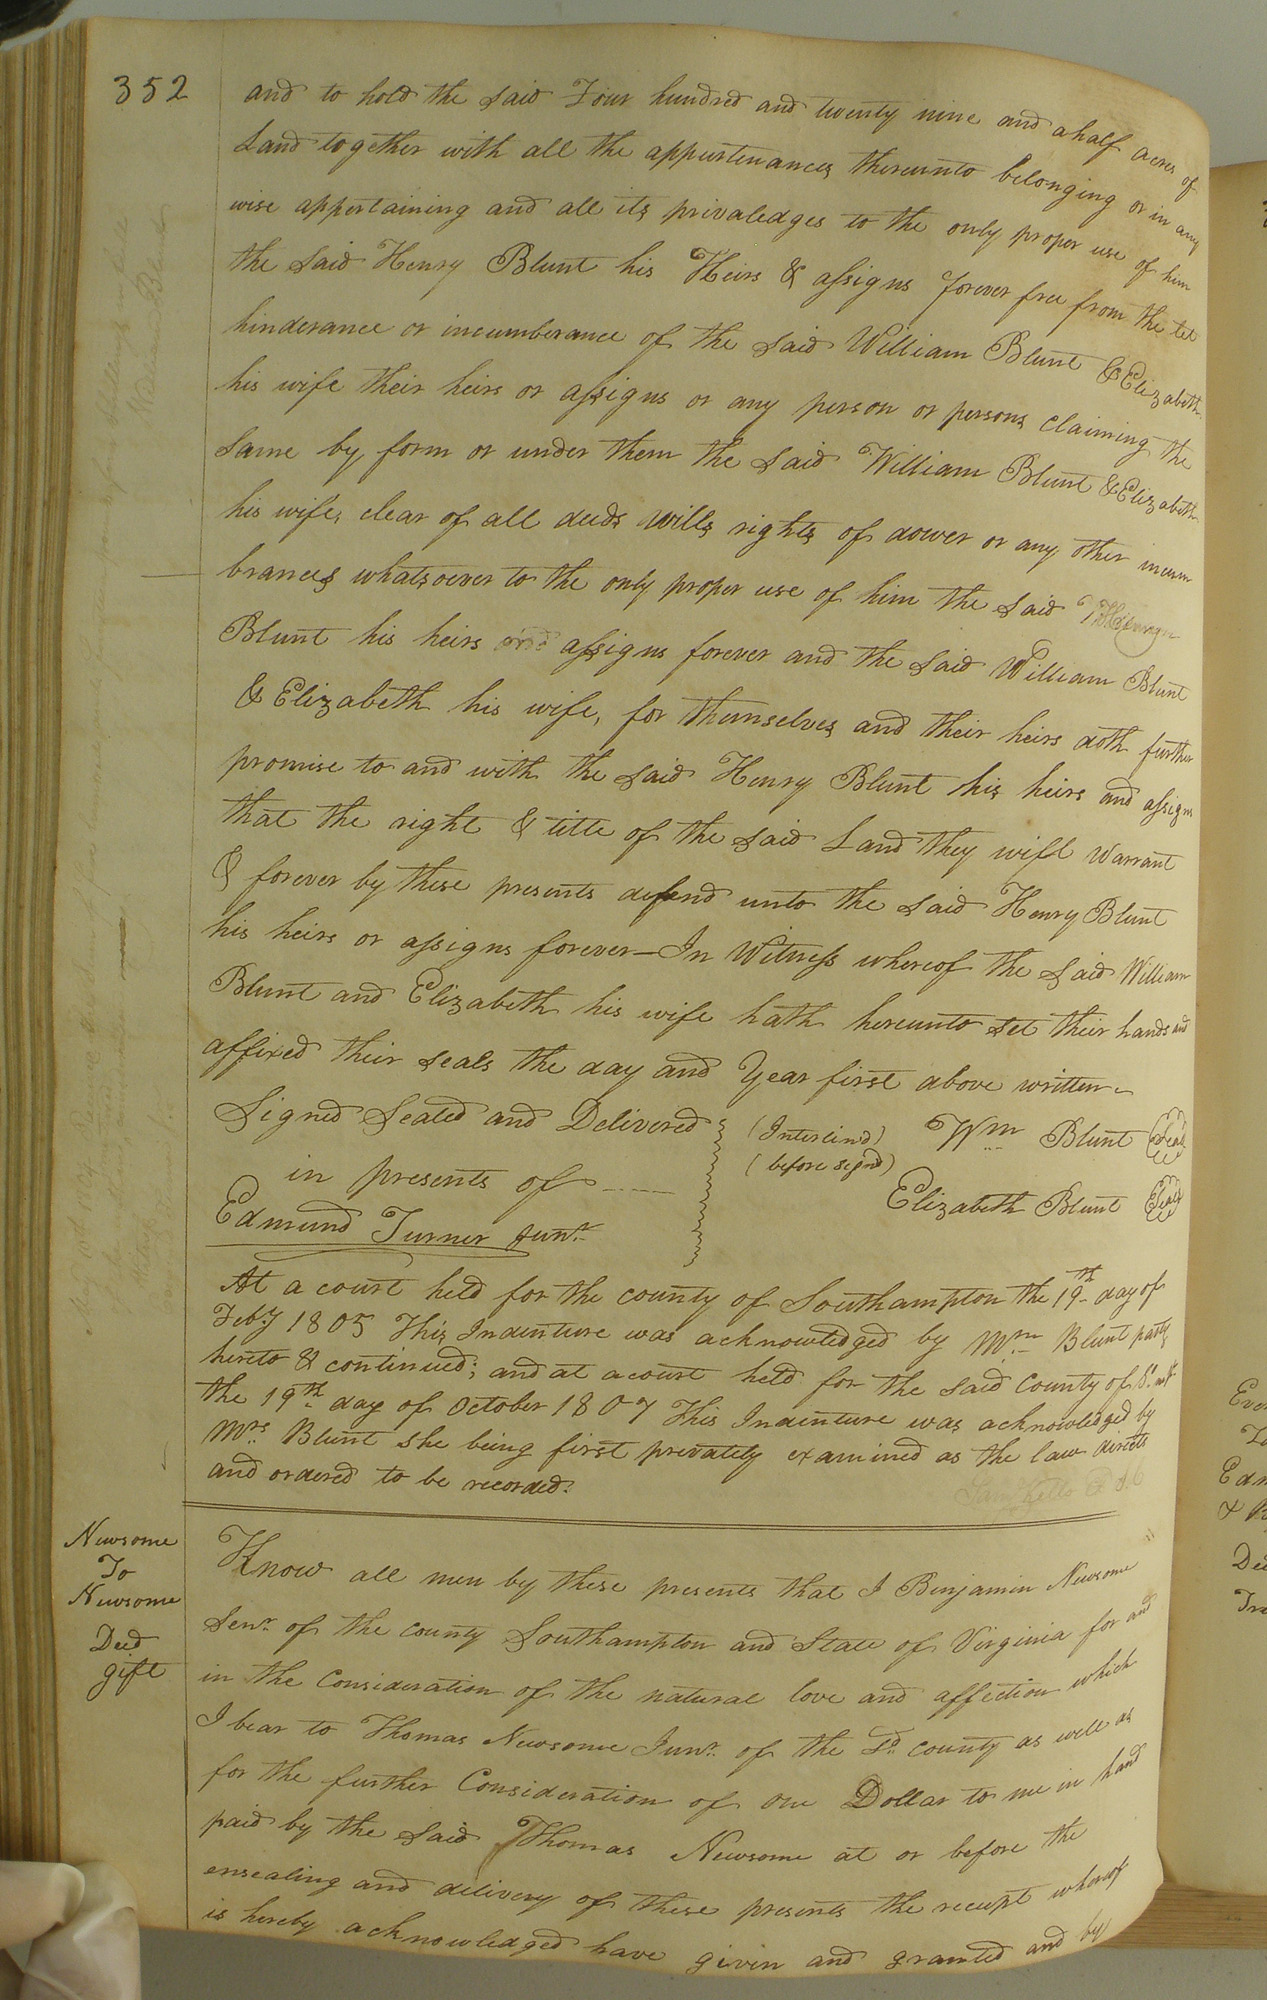 352
and to hold the said Four hundred and twenty nine and a half acres of
Land together with all the appurtenances thereunto belonging or in any
wise appertaining and all its privaledges to the only proper use of him
the said Henry Blunt his Heirs & assigns forever free from the let
hinderance or incumberance of the said William Blunt & Elizabeth
his wife their heirs or assigns or any person or persons claiming the
same by form or under them the said William Blunt & Elizabeth
his wife, clear of all deeds wills rights of dower or any other incum
brances whatsoever to the only proper use of him the said
Blunt his heirs and assigns forever and the said William Blunt
& Elizabeth his wife, for themselves and their heirs doth further
promise to and with the said Henry Blunt his heirs and assigns
that the right & title of the said Land they will warrant
& forever by these presents defend unto the said Henry Blunt
his heirs or assigns forever — In Witness whereof the said William
Blunt and Elizabeth his wife hath hereunto set their hands and
affixed their seals the day and Year first above written
Signed Sealed and Delivered
in presents of
Edmund Turner Junr.
(Interlind)
(before signd)
Wm Blunt Seal
Elizabeth Blunt Seal
At a court held for the county of Southampton the 19th day of
Feby 1805 This Indenture was acknowledged by Wm Blunt party
hereto & continued; and at a court held for the said County of
the 19th day of October 1807 This Indenture was acknowledged by
Mrs. Blunt she being first privately examined as the law directs
and ordered to be recorded.
Newsome
To
Newsome
Deed
gift
Know all men by these presents that I Benjamin Newsome
Senr. of the county Southampton and State of Virginia for and
in the Consideration of the natural love and affection which
I bear to Thomas Newsome Junr. of the Sd. county as well as
for the further Consideration of one Dollar to me in hand
paid by the said Thomas Newsome at or before the
ensealing and delivery of these presents the receipt whereof
is hereby acknowledged have given and granted and by